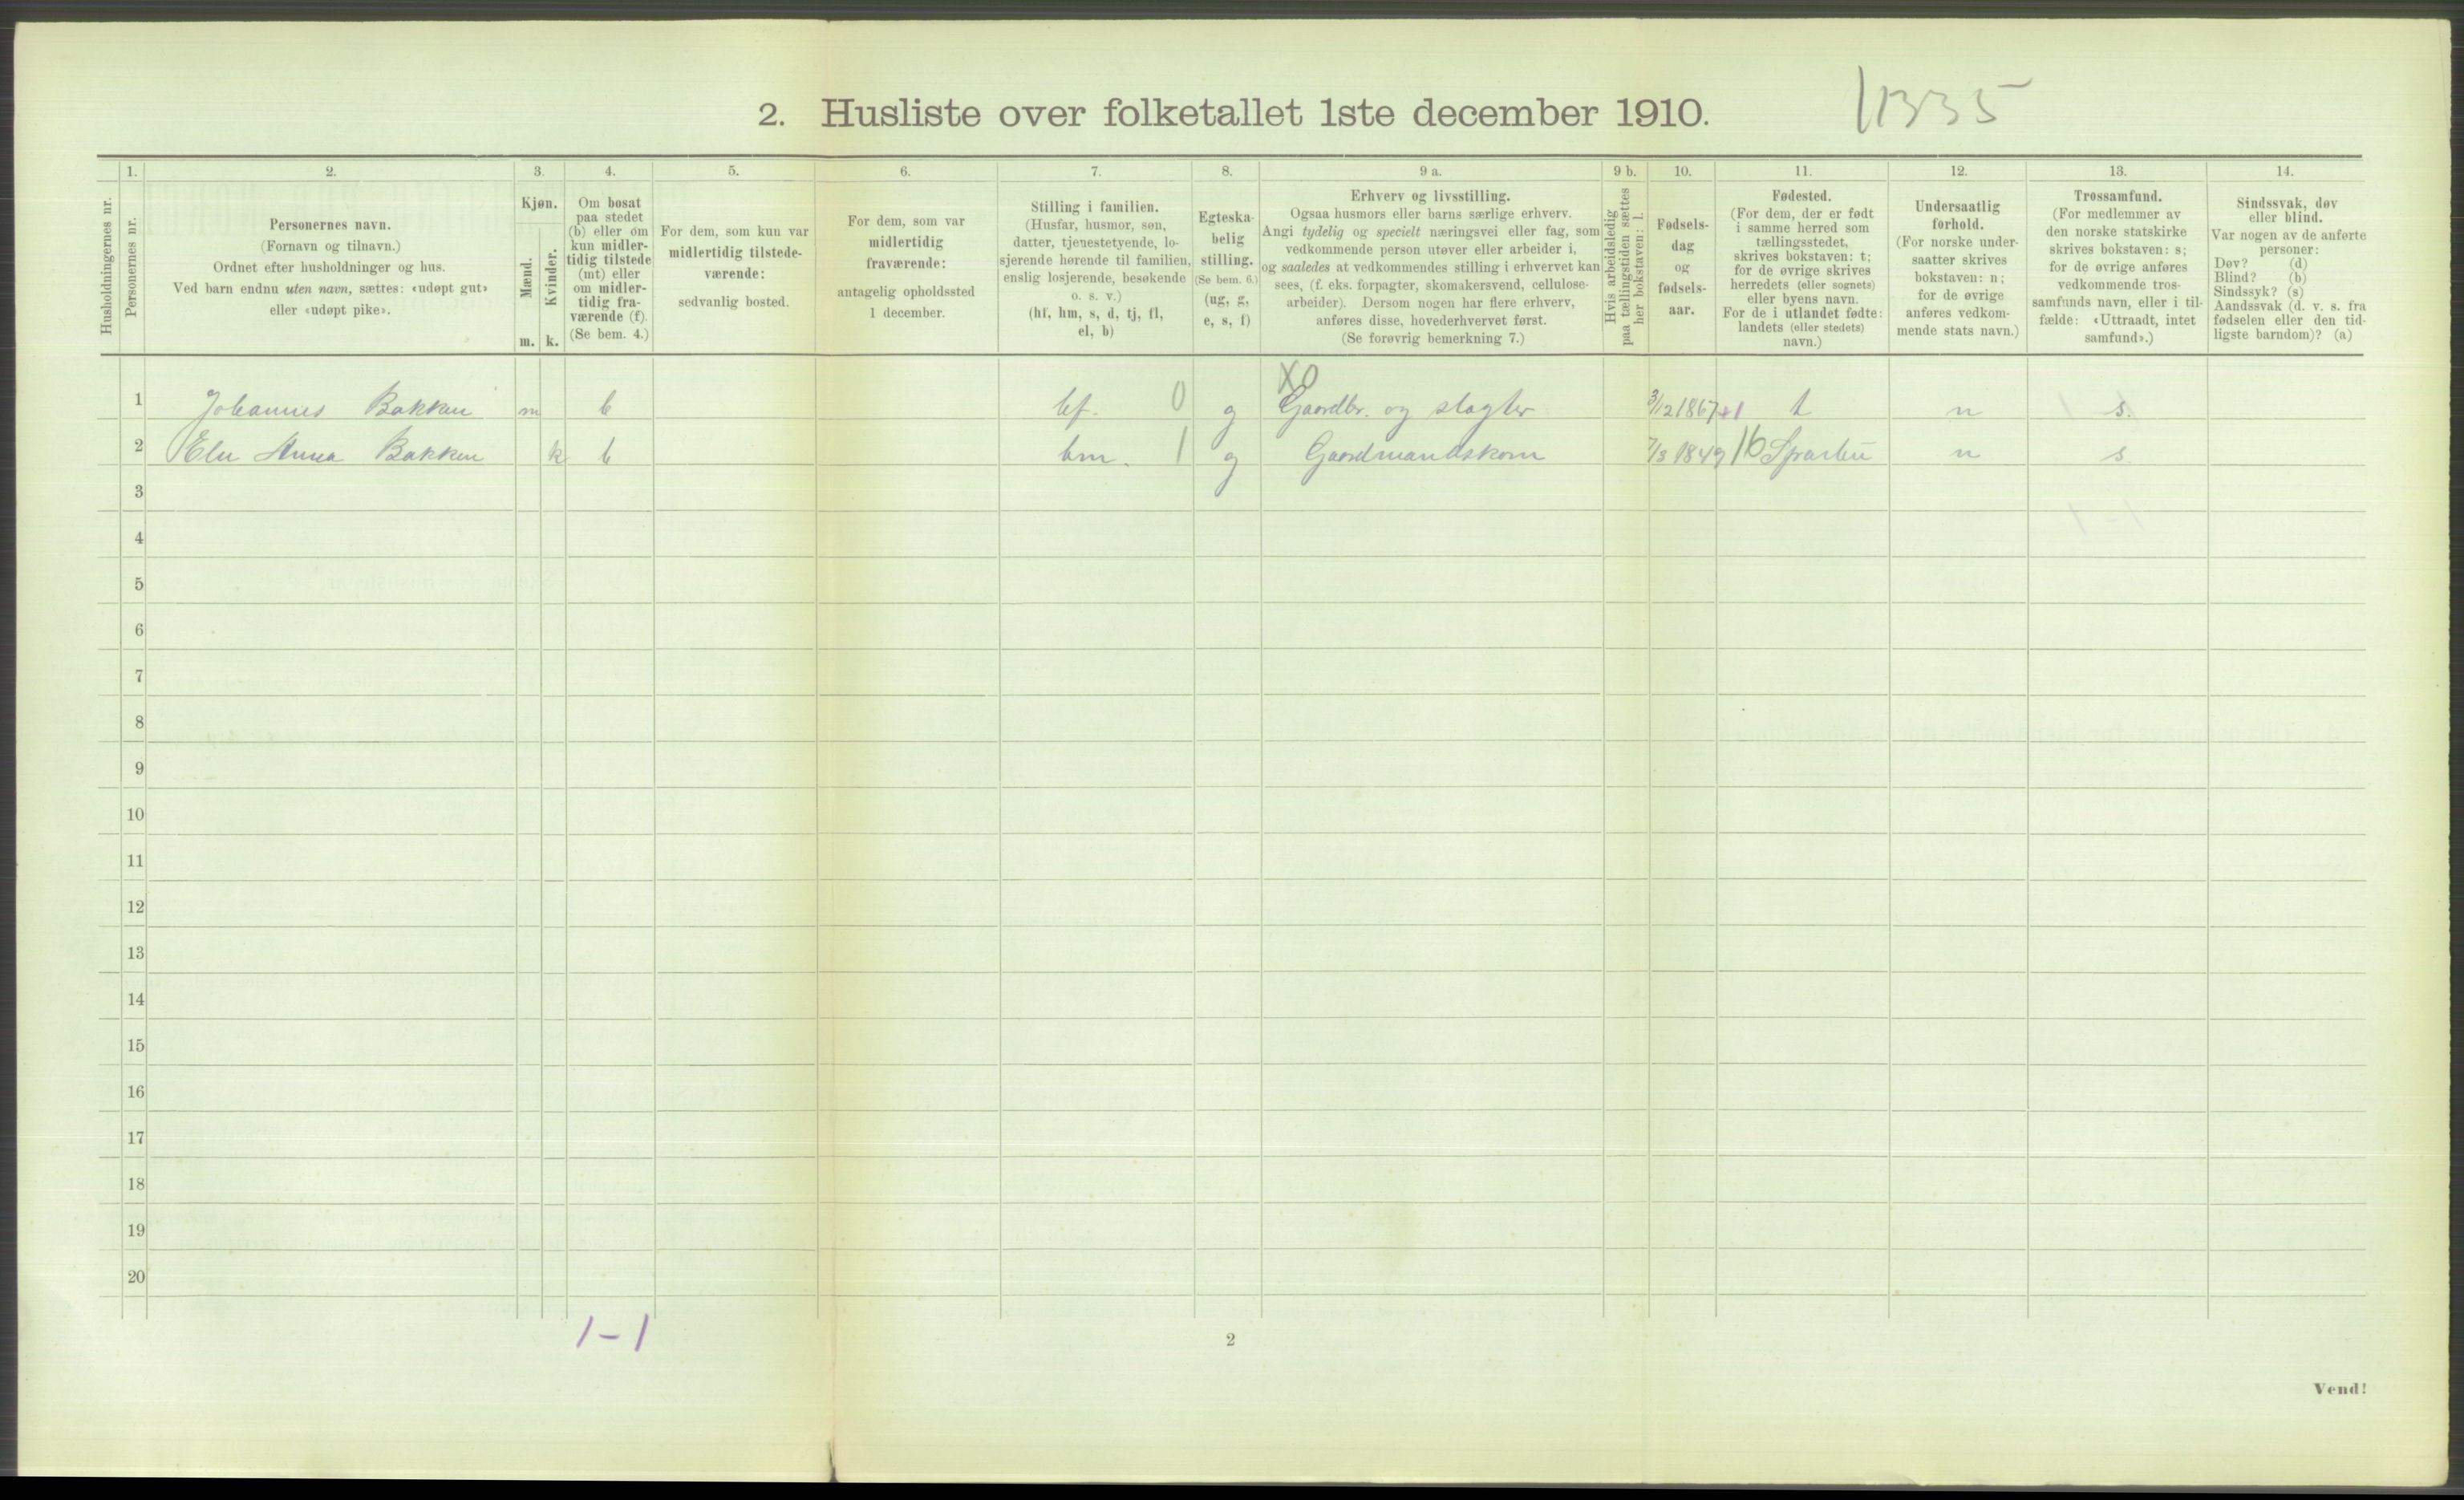 2. Husliste over folketallet 1ste december 1910.
1335
1. 2. 3. 4. 5. 6. 7. 8. 9 a. 9 b. 10. 11. 12. 13. 14.
Husholdningernes nr.
Personernes nr.
Personernes navn.
(Fornavn og tilnavn.)
Ordnet efter husholdninger og hus.
Ved barn endnu uten navn, sættes: «udøpt gut»
eller «udøpt pike».
Kjøn.
Mænd.
Kvinder.
m. k.
Om bosat
paa stedet
(b) eller om
kun midler-
tidig tilstede
(mt) eller
om midler-
tidig fra-
værende (f).
(Se bem. 4.)
For dem, som kun var
midlertidig tilstede-
værende:
sedvanlig bosted.
For dem, som var
midlertidig
fraværende:
antagelig opholdssted
1 december.
Stilling i familien.
(Husfar, husmor, søn,
datter, tjenestetyende, lo-
sjerende hørende til familien,
enslig losjerende, besøkende
o. s. v.)
(hf, hm, s, d, tj, fl,
el, b)
Egteska-
belig
stilling.
(Se bem. 6.)
(ug, g,
e, s, f)
Erhverv og livsstilling.
Ogsaa husmors eller barns særlige erhverv.
Angi tydelig og specielt næringsvei eller fag, som
vedkommende person utøver eller arbeider i,
og saaledes at vedkommendes stilling i erhvervet kan
sees, (f. eks. forpagter, skomakersvend, cellulose-
arbeider). Dersom nogen har flere erhverv,
anføres disse, hovederhvervet først.
(Se forøvrig bemerkning 7.)
Hvis arbeidsledig
paa tællingstiden sættes
her bokstaven: l.
Fødsels-
dag
og
fødsels-
aar.
Fødested.
(For dem, der er født
i samme herred som
tællingsstedet,
skrives bokstaven: t;
for de øvrige skrives
herredets (eller sognets)
eller byens navn.
For de i utlandet fødte:
landets (eller stedets)
navn.)
Undersaatlig
forhold.
(For norske under-
saatter skrives
bokstaven: n;
for de øvrige
anføres vedkom-
mende stats navn.)
Trossamfund.
(For medlemmer av
den norske statskirke
skrives bokstaven: s;
for de øvrige anføres
vedkommende tros-
samfunds navn, eller i til-
fælde: «Uttraadt, intet
samfund».)
Sindssvak, døv
eller blind.
Var nogen av de anførte
personer:
Døv? (d)
Blind? (b)
Sindssyk? (s)
Aandssvak (d. v. s. fra
fødselen eller den tid-
ligste barndom)? (a)
X0
1 Johannes Bakken m b hf. 0 g Gaardbr. og slagter 3/12 1867 t n s.
2 Anna Bakken k b hm. 1 g Gaardmandskone 7/3 1849 16 Sparbu n s
3
4
5
6
7
8
9
10
11
12
13
14
15
16
17
18
19
20
1-1
2
Vend!